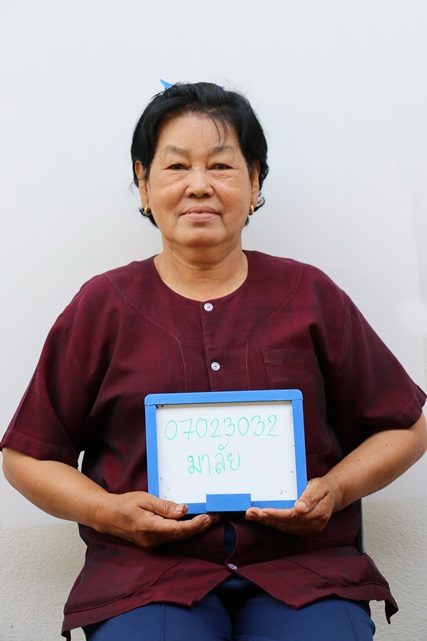 07023032
มาลัย